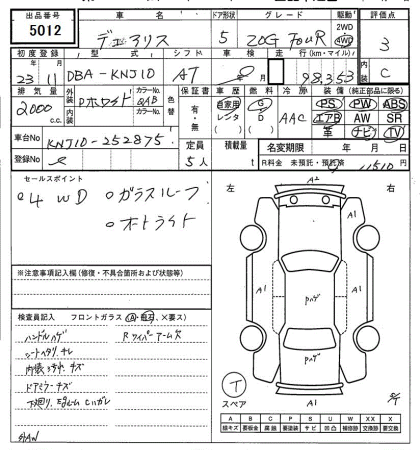 出品番号 車名 ドア形状 グレード 駆動 評価点
5012 デュアリス 5 20G FouR 2WD 4WD 3
初度登録 型式 シフト 車検 走行(km・マイル) 内装
23 11 DBA-KNJ10 AT 年 月 98,353 C
排気量 外装 カラーNo. 色替 保証書 車歴 燃料 冷房 装備(純正部品に限る)
2000 c.c. Pホワイト QAB 有・無 自家用 G AAC PS PW ABS
内装 カラーNo. レンタ D エアB AW SR
革 ナビ TV
車台No. KNJ10-252875 定員 積載量 名変期限 年 月 日
登録No. 5人 t R料金 未預託・預託済 11510 円
セールスポイント 左 右
○4WD ○ガラスルーフ
○オートライト
A1
A1 A1
Pハゲ
Pハゲ
※注意事項記入欄(修復・不具合箇所および状態等)
検査員記入 フロントガラス(A・飛石、×要ス)
ハンドルハゲ Rワイパーアームサ
シートヘタリ、チレ
内装コゲ、キズ
ドアミラーキズ
T
スペア A1
A B C P S U W XX X
線キズ 要板金 腐蝕 要塗装 サビ 凹凸 補修跡 交換跡 要交換